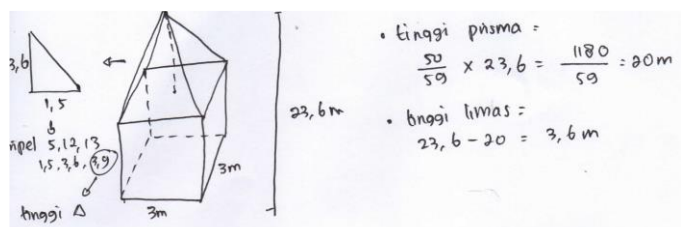 3,6
1,5
5,12,13
1,5,3,6,3,9
tinggi Δ
3m
3m
23,6 m
• tinggi prisma =
50/59 × 23,6 = 1180/59 = 20m
• tinggi limas =
23,6 - 20 = 3,6 m